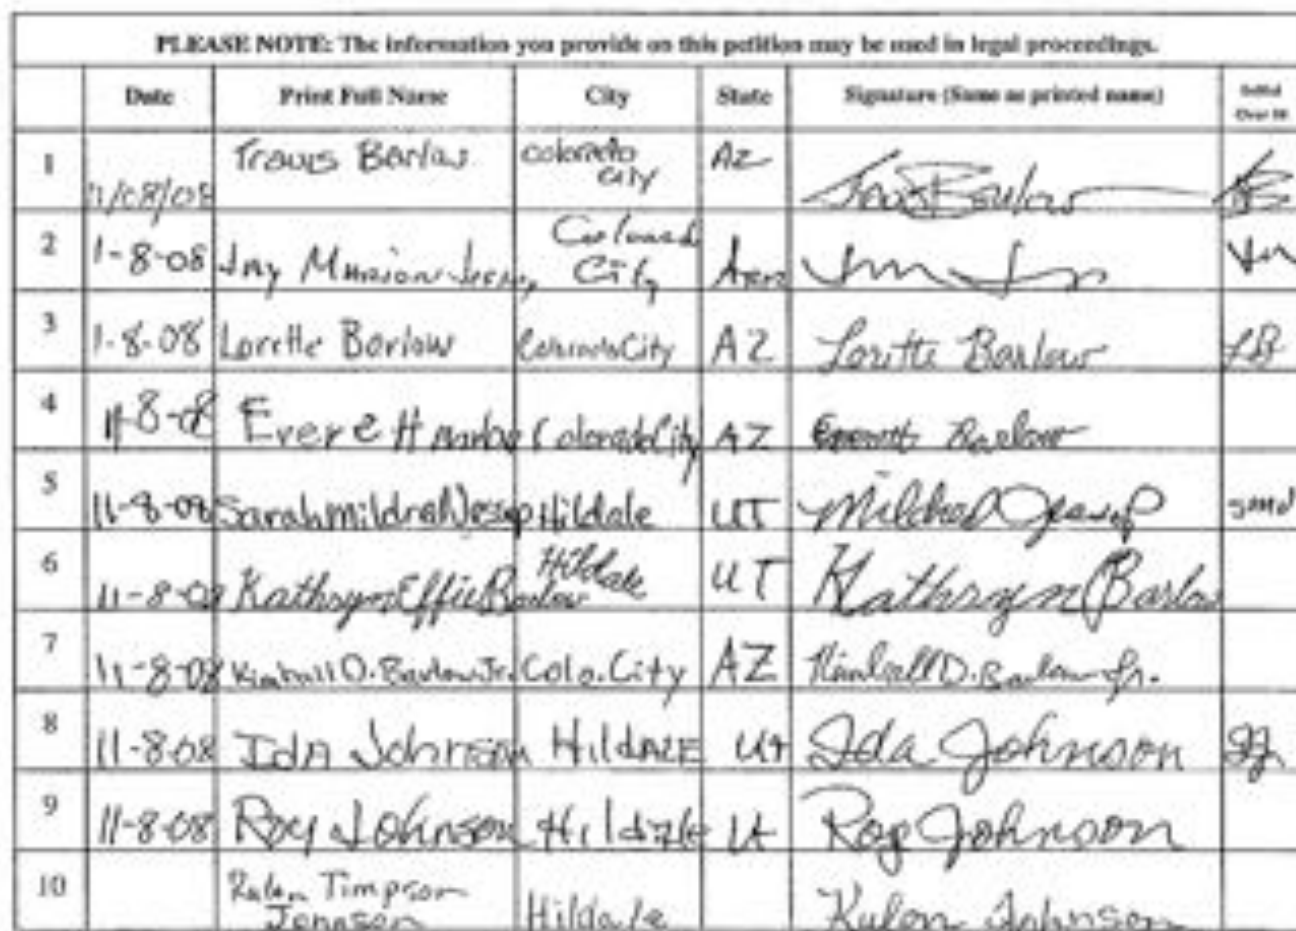 PLEASE NOTE: The information you provide on this petition may be used in legal proceedings.
Date Print Full Name City State Signature (Same as printed name) Initial Over 18
1 11/08/08 Travis Barlow Colorado City AZ Travis Barlow TB
2 1-8-08 Jay Marion Jessop Colorado City Ariz
3 1-8-08 Lorette Barlow Colorado City AZ Lorette Barlow LB
4 11-8-08 Everett Barlow Colorado City AZ Everett Barlow
5 11-8-08 Sarah Mildred Jessop Hildale UT Mildred Jessop SMJ
6 11-8-08 Kathryn Effie Barlow Hildale UT Kathryn Barlow
7 11-8-08 Kimball D. Barlow Jr. Colo. City AZ Kimball D. Barlow Jr.
8 11-8-08 Ida Johnson HildALE Ut Ida Johnson IJ
9 11-8-08 Roy Johnson Hildale Ut Roy Johnson
10 Rulon Timpson Johnson Hildale Rulon Johnson